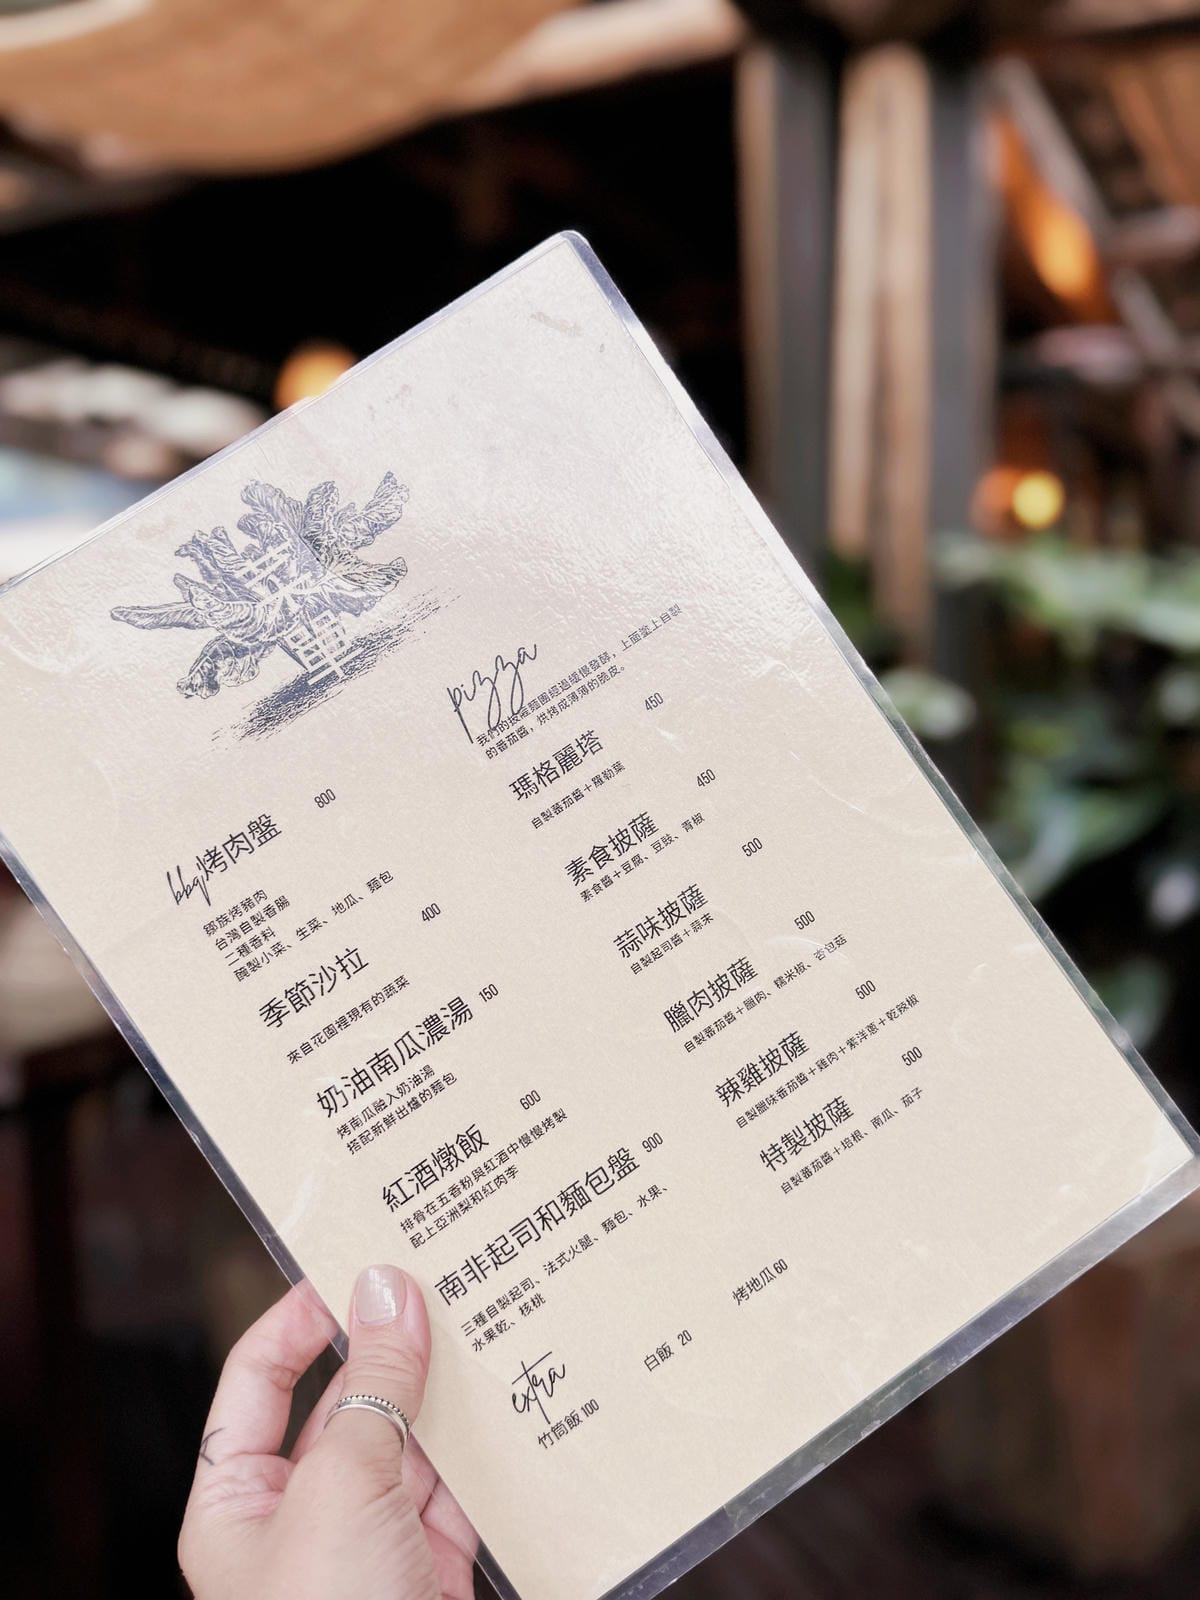 菜單
bbq烤肉盤 800
鄒族烤豬肉
台灣自製香腸
二種香料
醃製小菜、生菜、地瓜、麵包
季節沙拉 400
來自花園裡現有的蔬菜
奶油南瓜濃湯 150
烤南瓜融入奶油湯
搭配新鮮出爐的麵包
紅酒燉飯 600
排骨在五香粉與紅酒中慢慢烤製
配上亞洲梨和紅肉李
南非起司和麵包盤 900
三種自製起司、法式火腿、麵包、水果、
水果乾、核桃
extra
竹筒飯 100
白飯 20
烤地瓜 60
pizza
我們的披薩麵團經過緩慢發酵，上面塗上自製
的番茄醬，烘烤成薄薄的脆皮。
瑪格麗塔 450
自製蕃茄醬＋羅勒葉
素食披薩 450
素食醬＋豆腐、豆豉、青椒
蒜味披薩 500
自製起司醬＋蒜末
臘肉披薩 500
自製蕃茄醬＋臘肉、糯米椒、杏包菇
辣雞披薩 500
自製臘味番茄醬＋雞肉＋紫洋蔥＋乾辣椒
特製披薩 500
自製蕃茄醬＋培根、南瓜、茄子